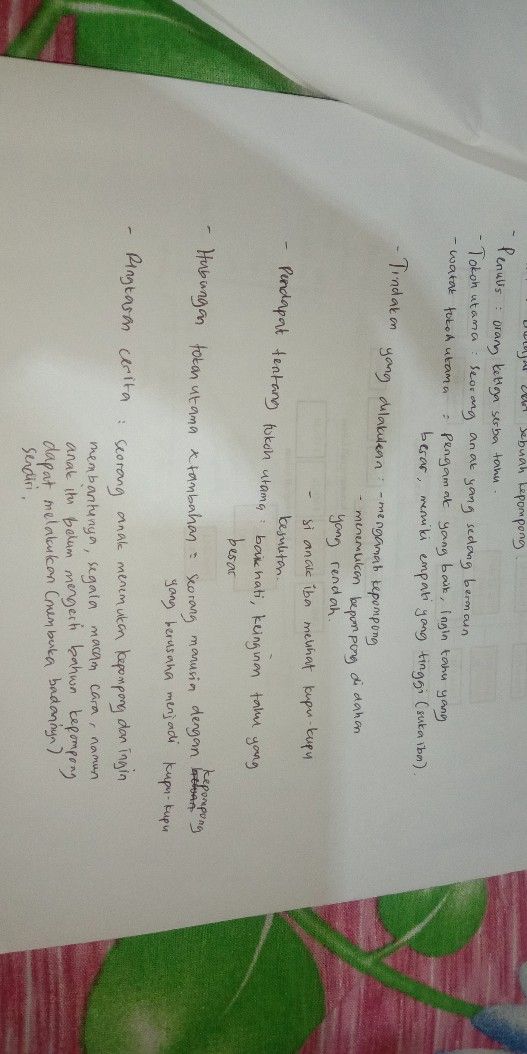 sebuah kepompong
- Penulis : orang ketiga serba tahu.
- Tokoh utama : seorang anak yang sedang bermain
- watak tokoh utama : pengamat yang baik, ingin tahu yang
besar, memiliki empati yang tinggi (suka iba).
- Tindakan yang dilakukan : - mengamati kepompong
- menemukan kepompong di dahan
yang rendah.
- si anak iba melihat kupu-kupu
kesulitan.
- Pendapat tentang tokoh utama : baik hati, keinginan tahu yang
besar
- Hubungan tokoh utama & tambahan : seorang manusia dengan kepompong
yang berusaha menjadi kupu-kupu
- Ringkasan cerita : seorang anak menemukan kepompong dan ingin
membantunya, segala macam cara, namun
anak itu belum mengerti bahwa kepompong
dapat melakukan (membuka badannya)
sendiri.